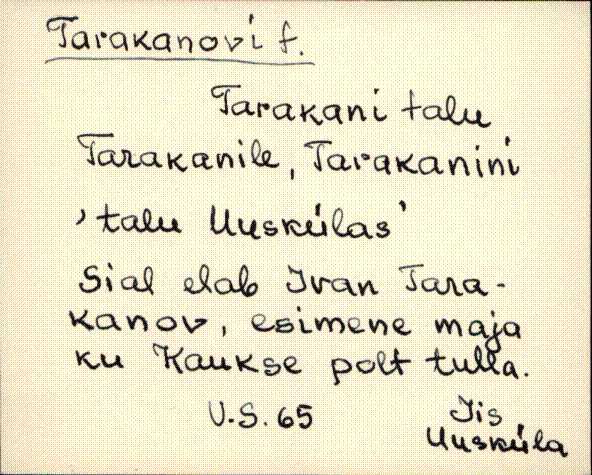 Tarakanovi f.
Tarakani talu
Tarakanile, Tarakanini
'talu Uusküłas'
Sial elab Ivan Tara-
kanov, esimene maja
ku Kaukse polt tulla.
V.S. 65
Iis
Uusküla